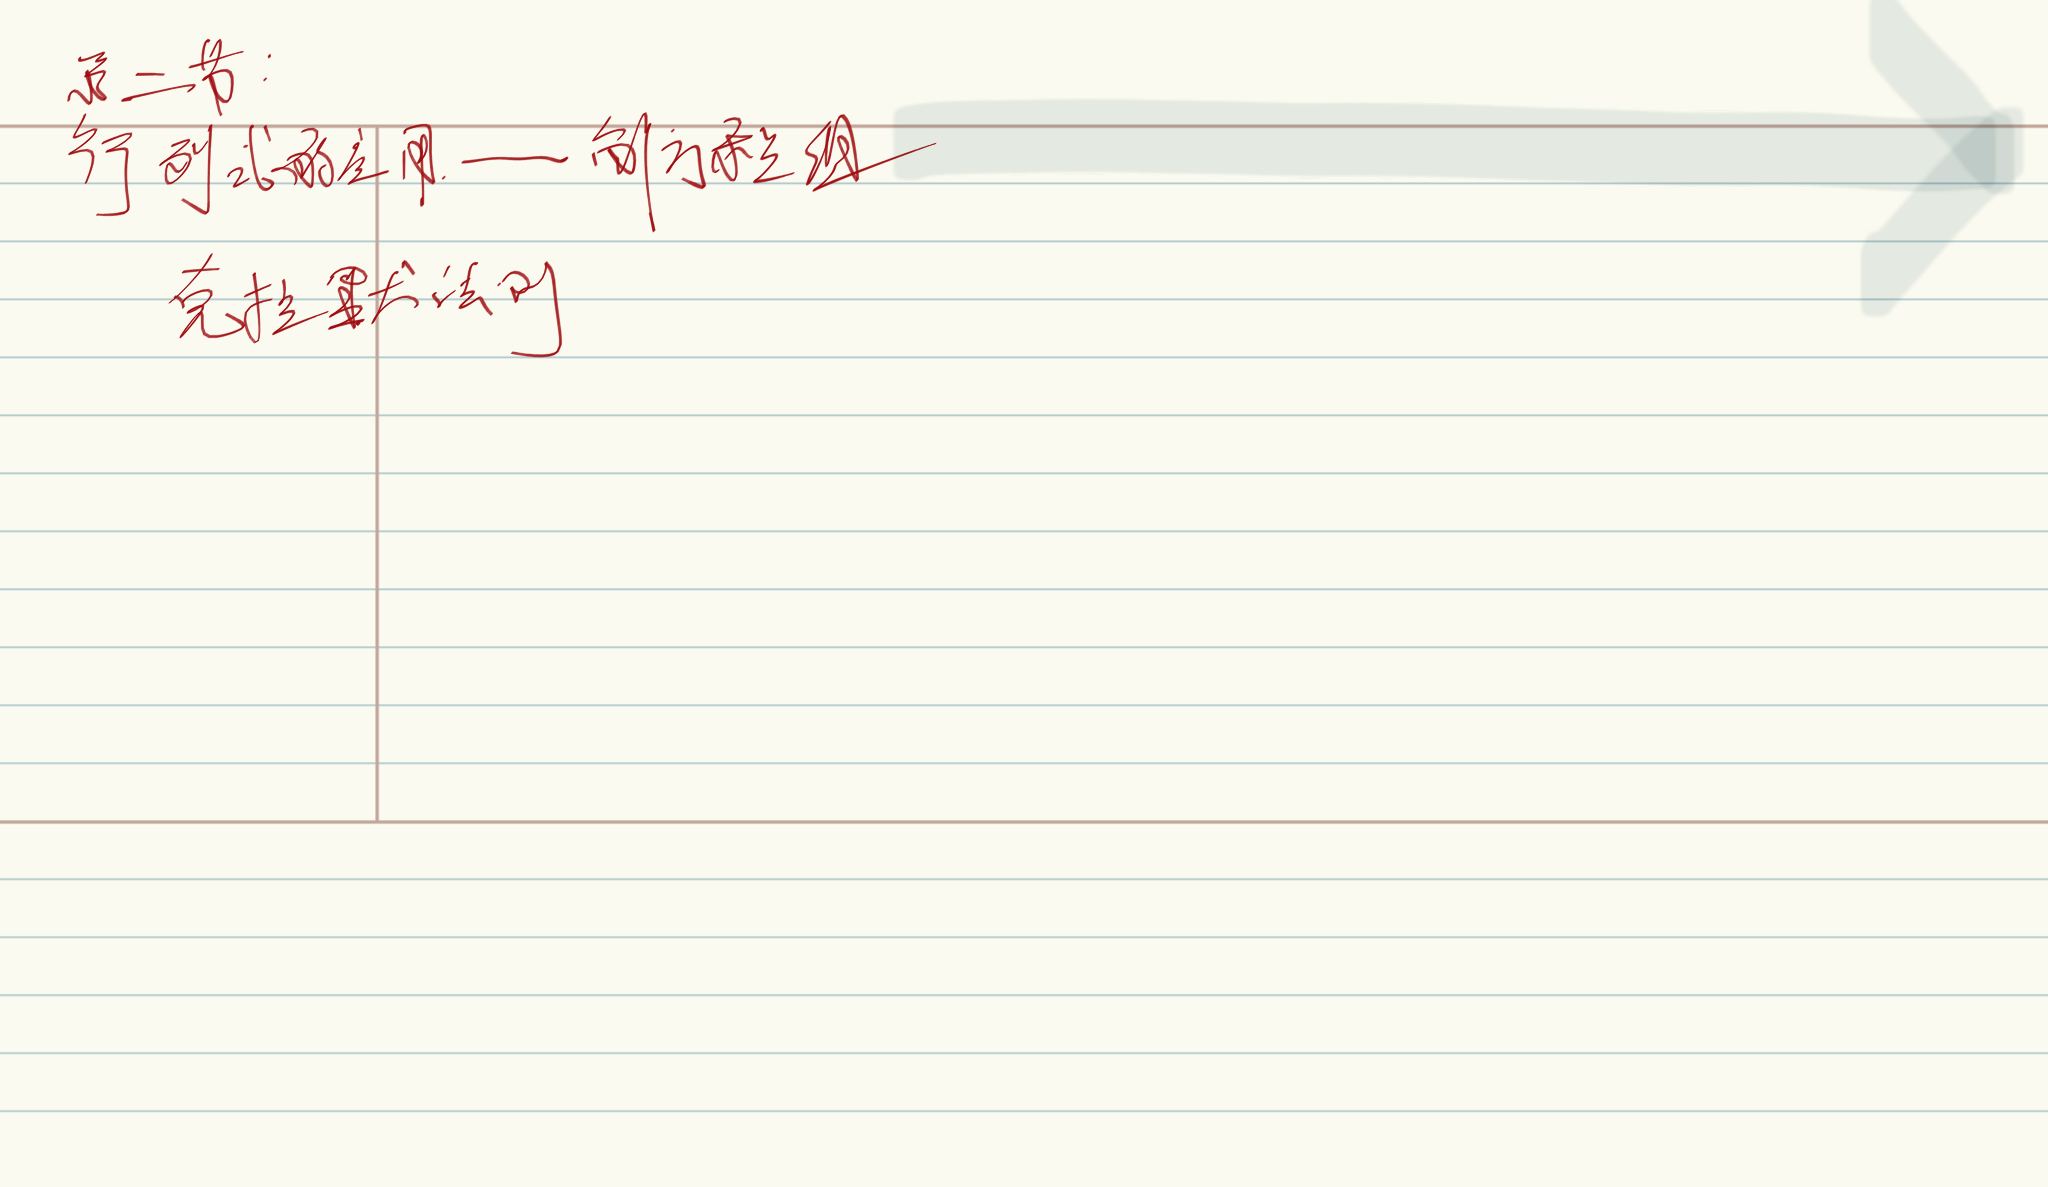 第二节:
行列式的应用——解方程组
克拉默法则